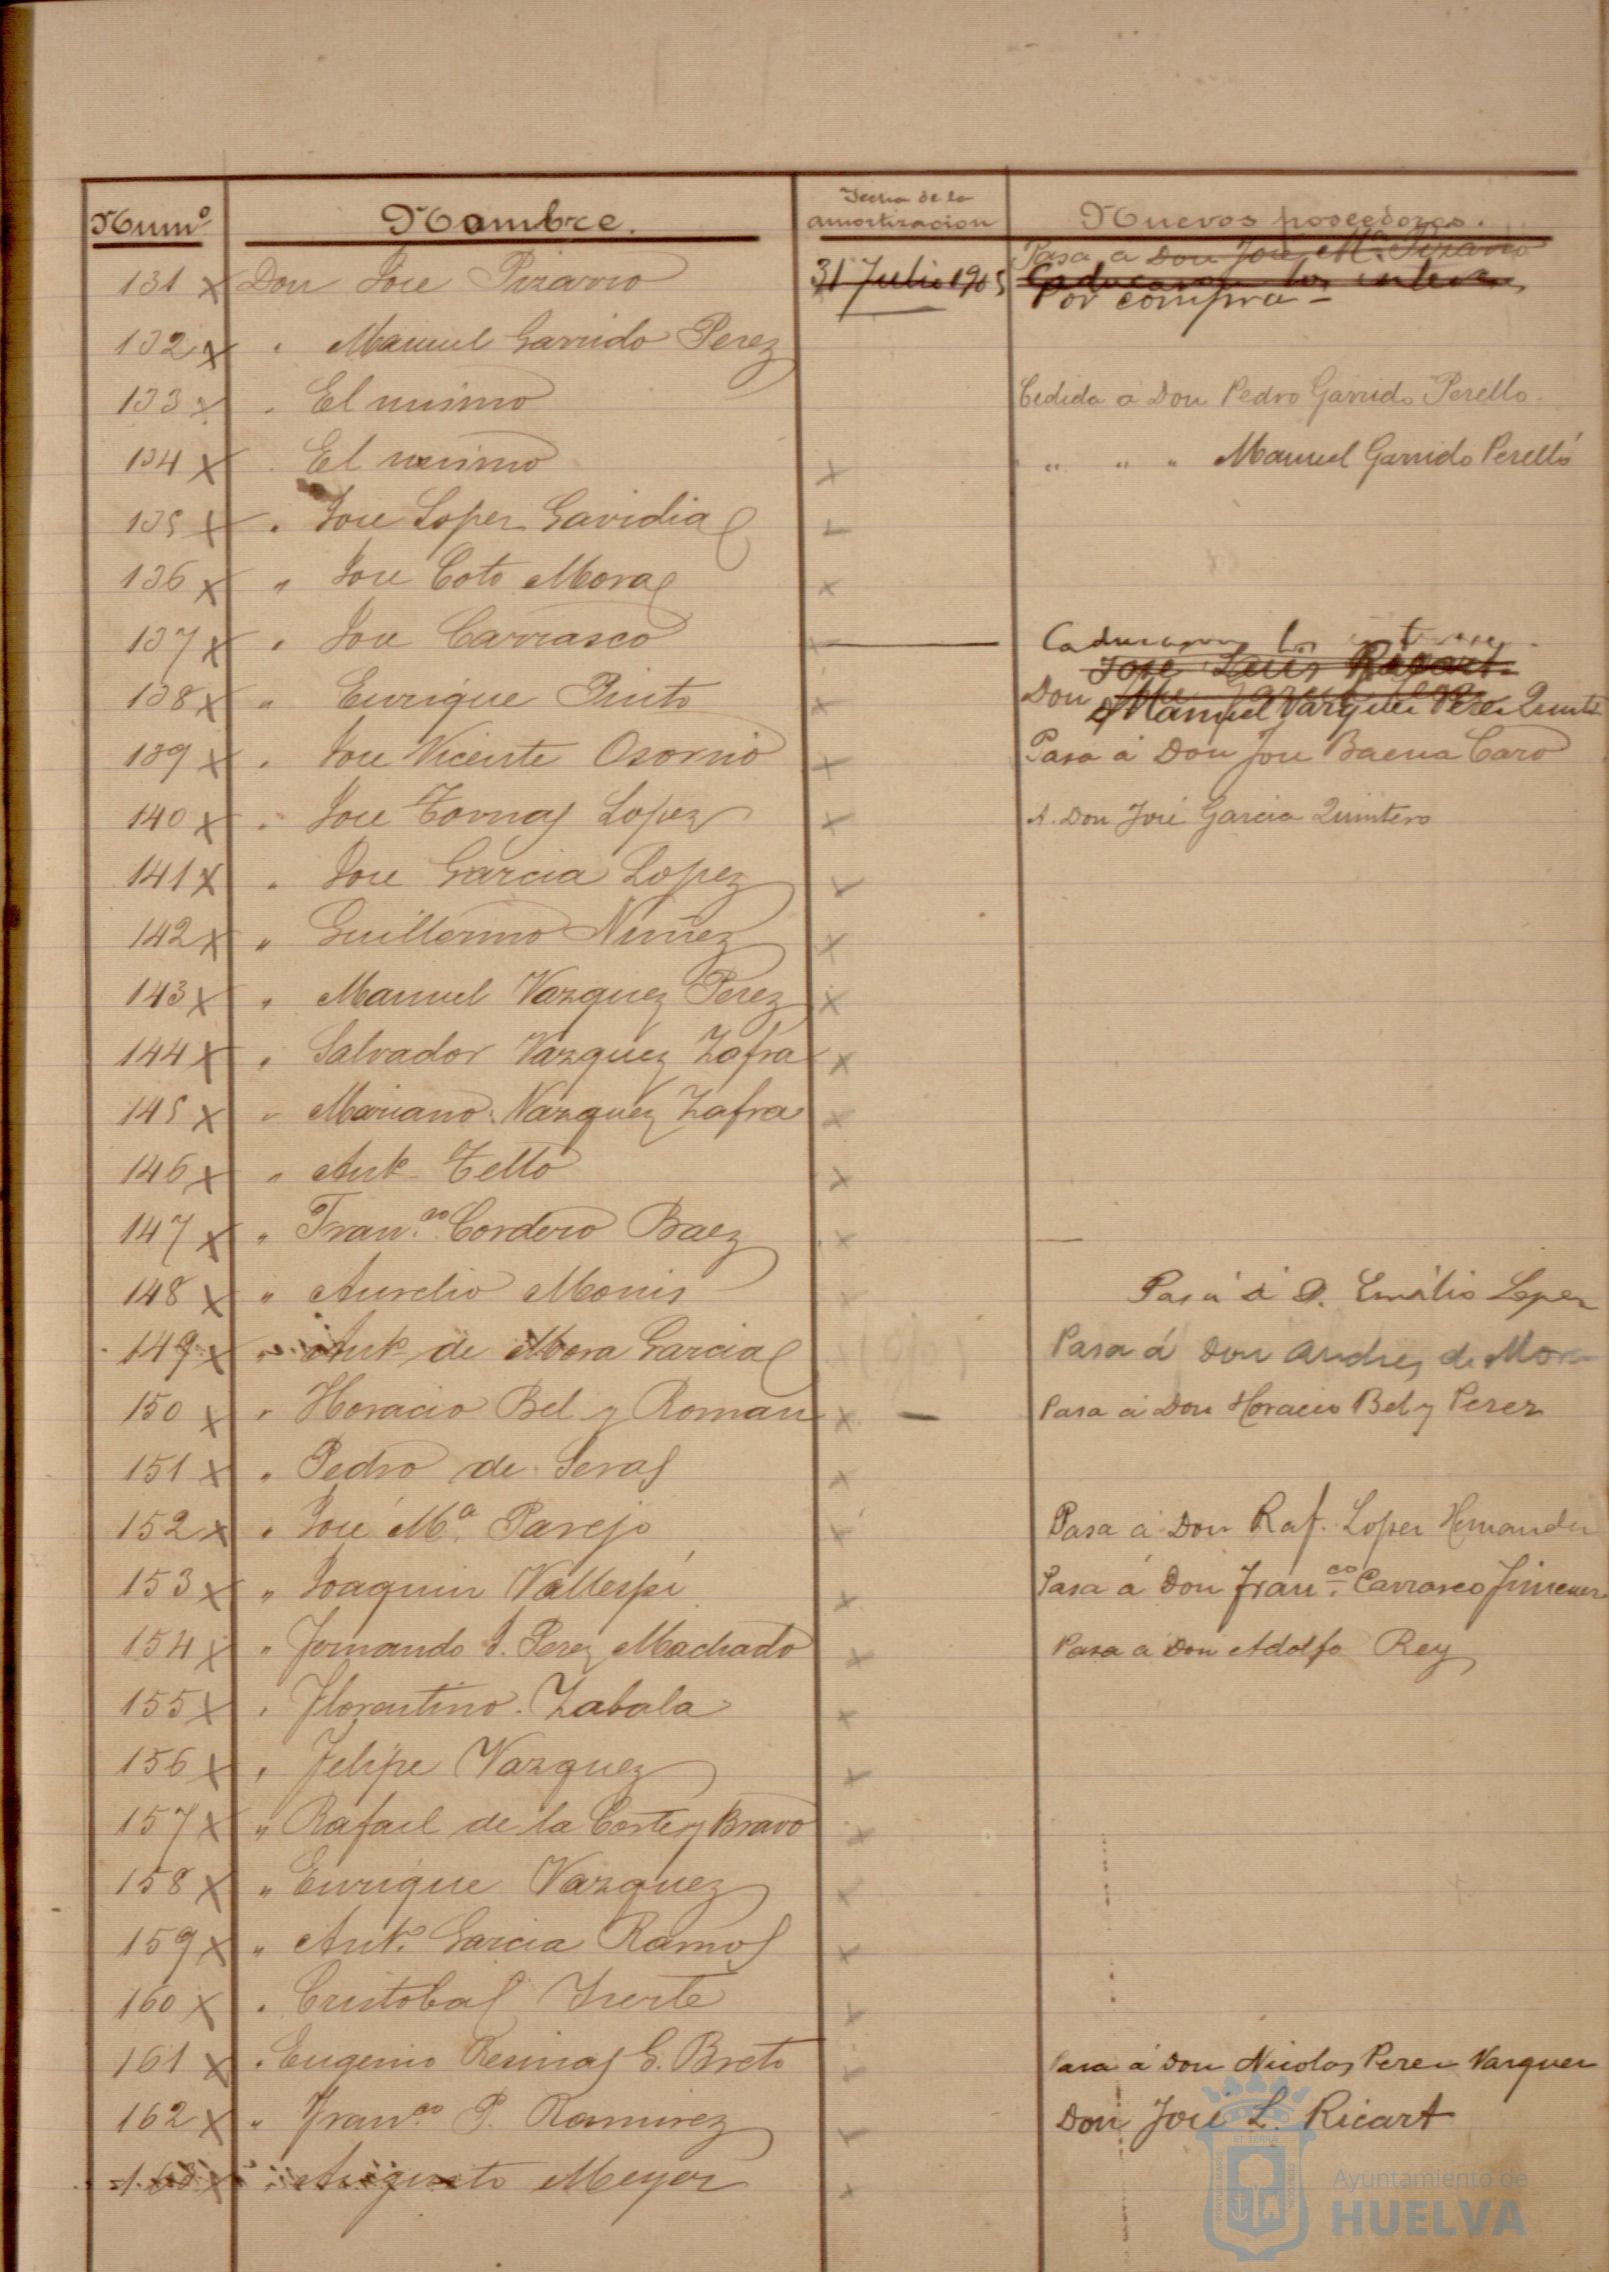 Numº Nombre. Fecha de la amortizacion Nuevos poseedores.
Pasa a Don Jose Mª Pizarro
131 x Don Jose Pizarro 31 Julio 1905 Caducaron los intereses
Por compra
132 x " Manuel Garrido Perez
133 x " El mismo Cedida a Don Pedro Garrido Perello.
134 x " El mismo x " " " Manuel Garrido Perelló
135 x " Jose Lopez Gavidia x
136 x " Jose Coto Mora x
137 x " Jose Carrasco x Caducaron los intereses.
Jose Luis Ricart
138 x " Enrique Pinto x Don
Manuel Vazquez Perez Quinto
139 x " Jose Vicente Osorno x Pasa á Don Jose Baena Caro
140 x " Jose Tornas Lopez x A. Don José Garcia Quintero
141 x " Jose Garcia Lopez x
142 x " Guillermo Nuñez x
143 x " Manuel Vazquez Perez x
144 x " Salvador Vazquez Zafra x
145 x " Mariano Vazquez Zafra x
146 x " Antº Tello x
147 x " Franco Cordero Baez x
148 x " Aurelio Monis Pasa á D. Emilio Lopez
149 x " Antº de Mora Garcia Pasa á Don Andres de Mora
150 x " Horacio Bel y Roman x — Pasa á Don Horacio Bel y Perez
151 x " Pedro de Seras x
152 x " José Mª Parejo x Pasa á Don Raf. Lopez Hernandez
153 x " Joaquin Vallespí x Pasa á Don Franco Carrasco Jimenez
154 x " Fernando S. Perez Machado x Pasa á Don Adolfo Rey
155 x " Florentino Zabala x
156 x " Felipe Vazquez x
157 x " Rafael de la Corte y Bravo x
158 x " Enrique Vazquez x
159 x " Antº Garcia Ramos x
160 x " Cristobal Yuste x
161 x " Eugenio Resinas G. Breto x Pasa á Don Nicolas Perez Vazquez
162 x " Franco P. Ramirez x Don José L. Ricart
163 x " Augusto Meyer x
Ayuntamiento de
HUELVA